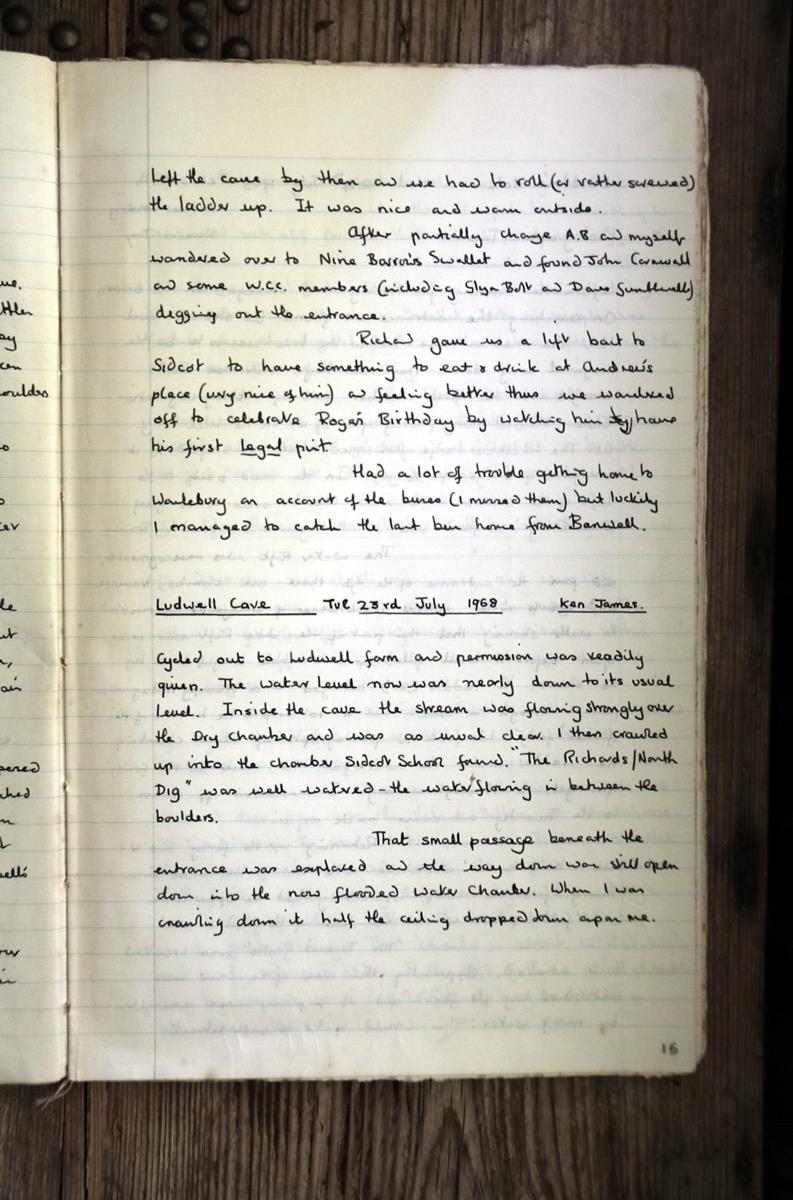 Left the cave by then and we had to roll (or rather screwed)
the ladder up. It was nice and warm outside.
After partially change A.B and myself
wandered over to Nine Barrows Swallet and found John Cornwall
and some W.C.C. members (including Glyn Bolt and Dave)
digging out the entrance.
Richard gave us a lift back to
Sidcot to have something to eat & drink at Andrew's
place (very nice of him) and feeling better thus we wandered
off to celebrate Roger's Birthday by watching him have
his first Legal pint.
Had a lot of trouble getting home to
on account of the buses (I missed them) but luckily
I managed to catch the last bus home from Banwell.
Ludwell Cave Tue 23rd July 1968 Ken James.
Cycled out to Ludwell farm and permission was readily
given. The water level now was nearly down to its usual
Level. Inside the cave the stream was flowing strongly over
the Dry Chamber and was as usual clear. I then crawled
up into the chamber Sidcot School found. "The Richards/North
Dig" was well watered - the water flowing in between the
boulders.
That small passage beneath the
entrance was explored and the way down was still open
down into the now flooded Water Chamber. When I was
crawling down it half the ceiling dropped down apon me.
ue.
ey
oulders
le
ut
n,
pered
ched
ell's